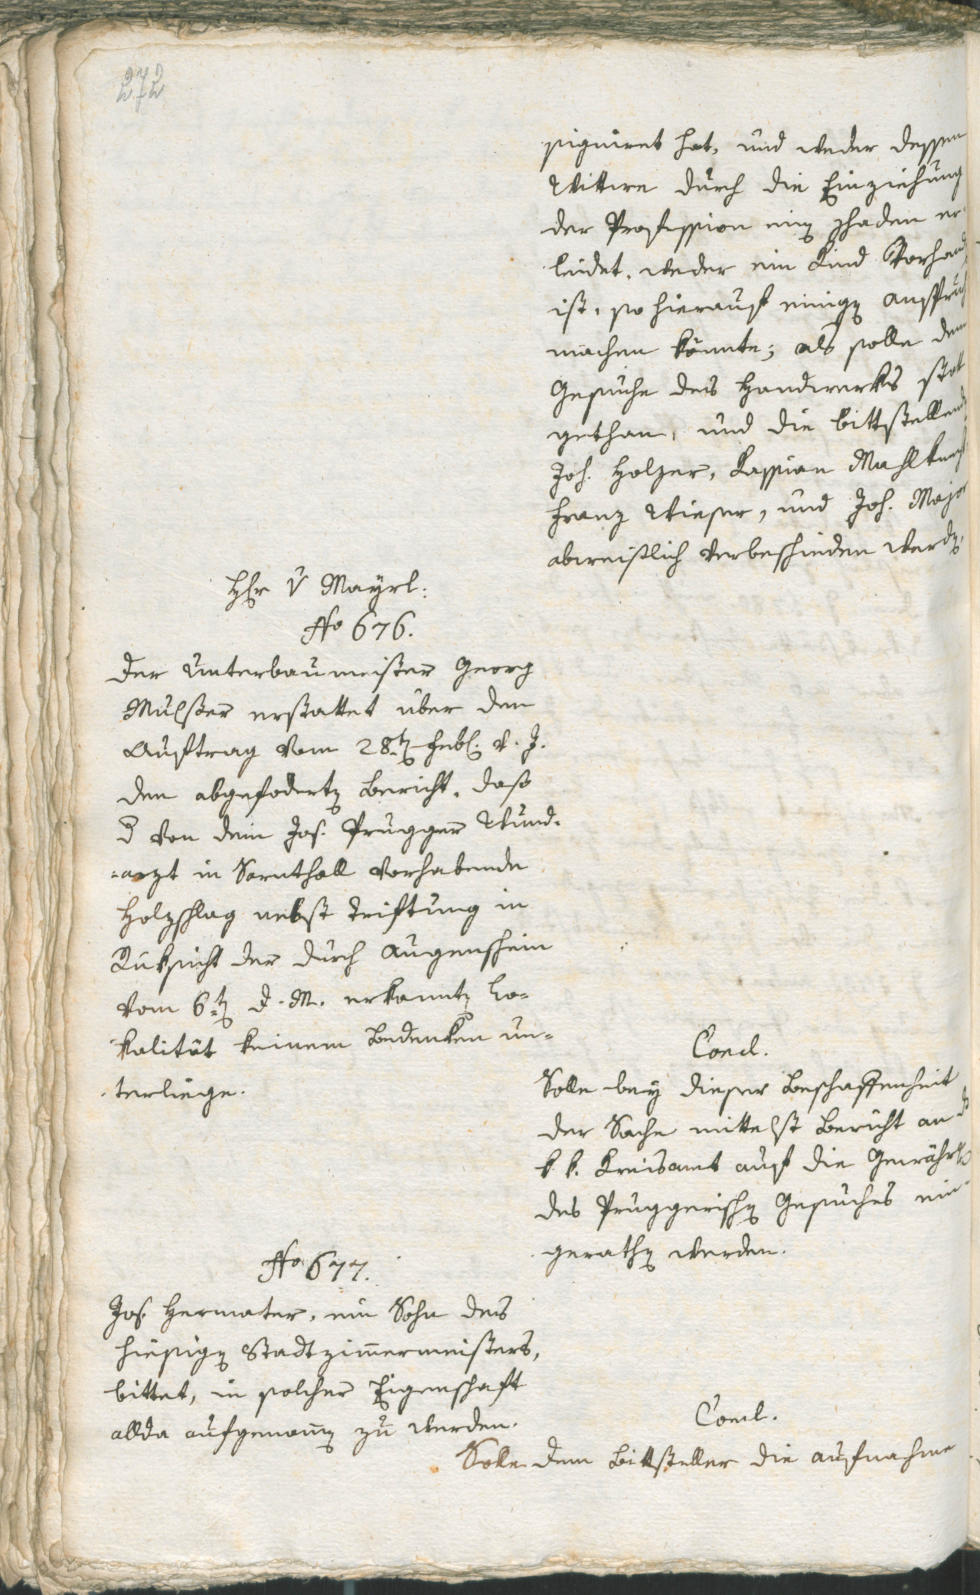 272
signiret hat, und weder dessen
Wittwe durch die Einziehung
der Profession eing schaden er
leidet, weder ein Kind Vorhand
ist, so hierauf einige anspruch
machen könnte; als solle dem
Gesuche des Handwerks statt
gethan, und die bittstellende
Joh. Holzer, Kassian Mahlknecht
Franz Wieser, und Joh. Major
abweislich verbeschieden werden.
Hr v Mayrl:
No 676.
Der Unterbaumeister Georg
Mulser erstattet über den
Auftrag vom 28ten Febr. d. J.
den abgefoderten Bericht, daß
d von dem Jos. Prugger Wund-
arzt in Sarnthall vorhabende
Holzschlag nebst Triftung in
Ruksicht der durch Augenschein
vom 6ten d. M. erkannten Lo-
kalität keinem Bedenken un-
terliege.
Concl.
Solle bey dieser Beschaffenheit
der Sache mittelst Bericht an d
k. k. Kreisamt auf die Gewähr
des Pruggerischen Gesuches ein-
gerathen werden.
No 677.
Jos. Hermater, ein Sohn des
hiesigen Stadtzimmermeisters,
bittet, in solcher Eigenschaft
allda aufgenommen zu werden.
Concl.
Solle dem Bittsteller die aufnahme